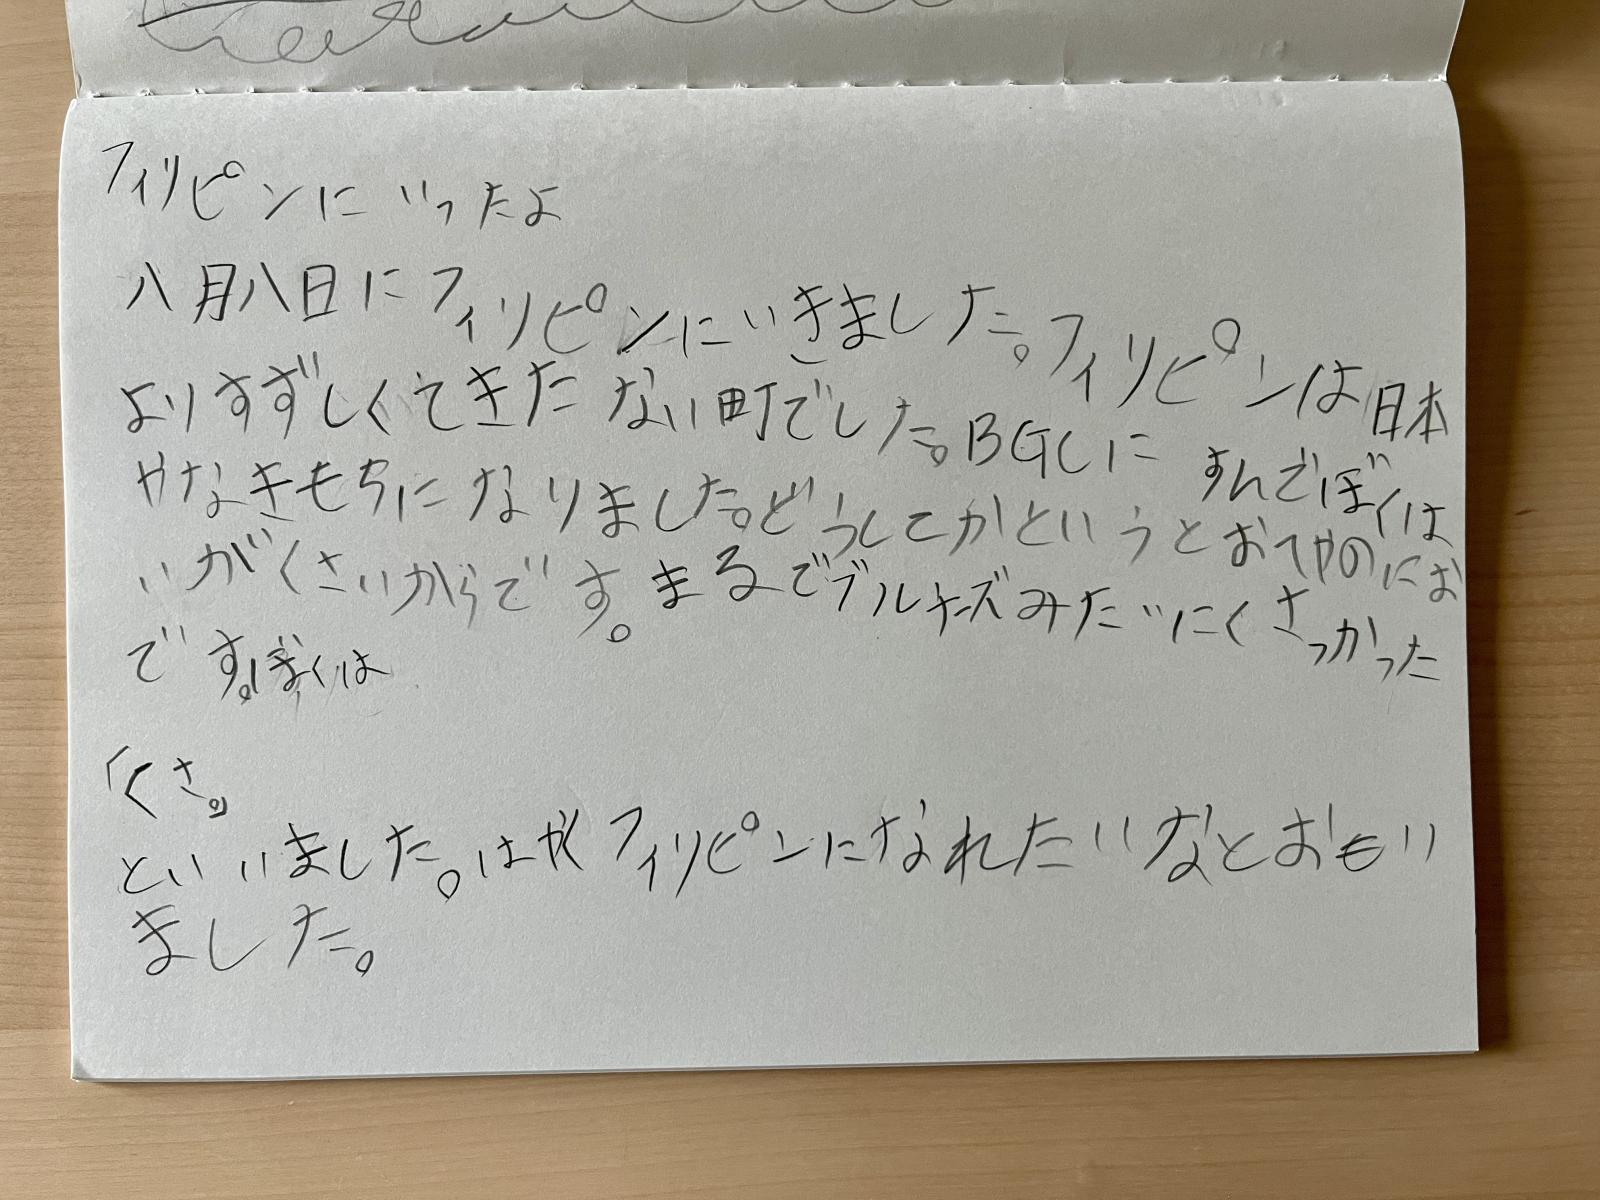 フィリピンにいったよ
八月八日にフィリピンにいきました。フィリピンは日本
よりすずしくてきたない町でした。BGCにすんでぼくは
やなきもちになりました。どうしてかというとおへやのにお
いがくさいからです。まるでブルチーズみたいにくさっかった
です。ぼくは
「くさ。」
といいました。はやくフィリピンになれたいなとおもい
ました。